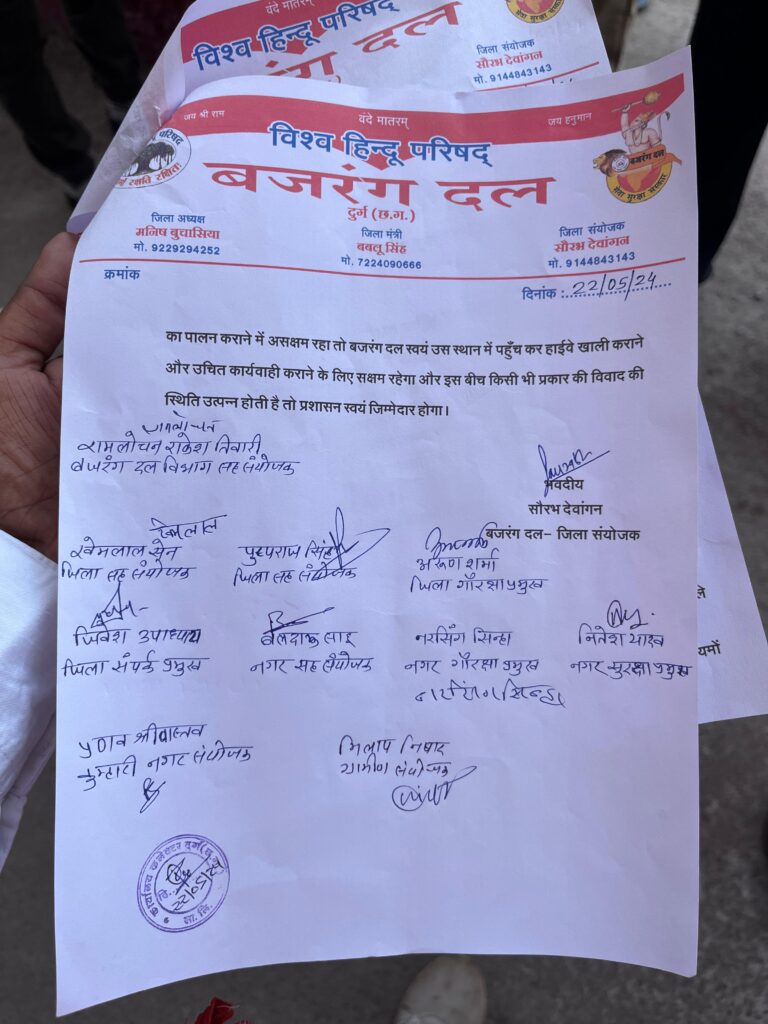 वंदे मातरम्
विश्व हिन्दू परिषद्
बजरंग दल
जिला संयोजक
सौरभ देवांगन
मो. 9144843143
जय श्री राम
वंदे मातरम्
जय हनुमान
विश्व हिन्दू परिषद्
बजरंग दल
दुर्ग (छ.ग.)
परिषद्
रक्षति रक्षितः
बजरंग दल
सेवा सुरक्षा संस्कार
जिला अध्यक्ष
मनिष बुचासिया
मो. 9229294252
जिला मंत्री
बबलू सिंह
मो. 7224090666
जिला संयोजक
सौरभ देवांगन
मो. 9144843143
क्रमांक
दिनांक :..22/05/24...
का पालन कराने में असक्षम रहा तो बजरंग दल स्वयं उस स्थान में पहुँच कर हाईवे खाली कराने
और उचित कार्यवाही कराने के लिए सक्षम रहेगा और इस बीच किसी भी प्रकार की विवाद की
स्थिति उत्पन्न होती है तो प्रशासन स्वयं जिम्मेदार होगा।
रामलोचन राकेश तिवारी
बजरंग दल विभाग सह संयोजक
भवदीय
सौरभ देवांगन
बजरंग दल– जिला संयोजक
खेमलाल
खेमलाल सेन
जिला सह संयोजक
पुष्पराज सिंह
जिला सह संयोजक
अरूण शर्मा
जिला गौरक्षा प्रमुख
उपाध्याय
जिला संपर्क प्रमुख
साहू
नगर सह संयोजक
नरसिंग सिन्हा
नगर गौरक्षा प्रमुख
नितेश यादव
नगर सुरक्षा प्रमुख
श्रीवास्तव
कुम्हारी नगर संयोजक
मिलाप निषाद
ग्रामीण संयोजक
कार्यालय कलेक्टर दुर्ग
22/05/24